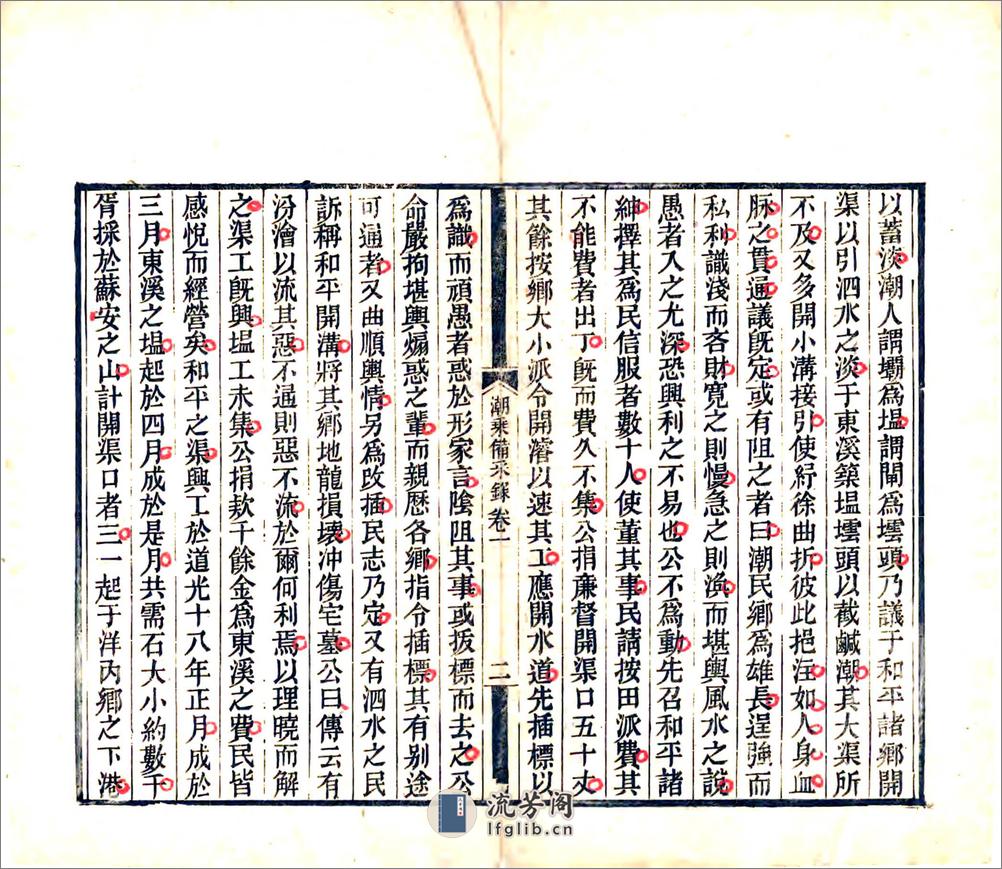 以蓄淡潮人謂壩爲塭謂閘爲壋頭乃議于和平諸鄉開
渠以引泗水之淡于東溪築塭壋頭以截鹹潮其大渠所
不及又多開小溝接引使紆徐曲折彼此挹注如人身血
脉之貫通議旣定或有阻之者曰潮民鄉爲雄長逞強而
私利識淺而吝財寬之則慢急之則渙而堪輿風水之說
愚者入之尤深恐興利之不易也公不爲動先召和平諸
紳擇其爲民信服者數十人使董其事民請按田派費其
不能費者出丁旣而費久不集公捐廉督開渠口五十丈
其餘按鄉大小派令開濬以速其工應開水道先插標以
潮乘備采錄卷一
二
爲識而頑愚者惑於形家言陰阻其事或拔標而去之公
命嚴拘堪輿煽惑之輩而親歷各鄉指令插標其有别途
可通者又曲順輿情另爲改插民志乃定又有泗水之民
訴稱和平開溝將其鄉地龍損壞冲傷宅墓公曰傳云有
汾澮以流其惡不通則惡不流於爾何利焉以理曉而解
之渠工旣興塭工未集公捐欵千餘金爲東溪之費民皆
感悅而經營矣和平之渠興工於道光十八年正月成於
三月東溪之塭起於四月成於是月共需石大小約數千
胥採於蘇安之山計開渠口者三一起于洋內鄉之下港
流芳阁
lfglib.cn